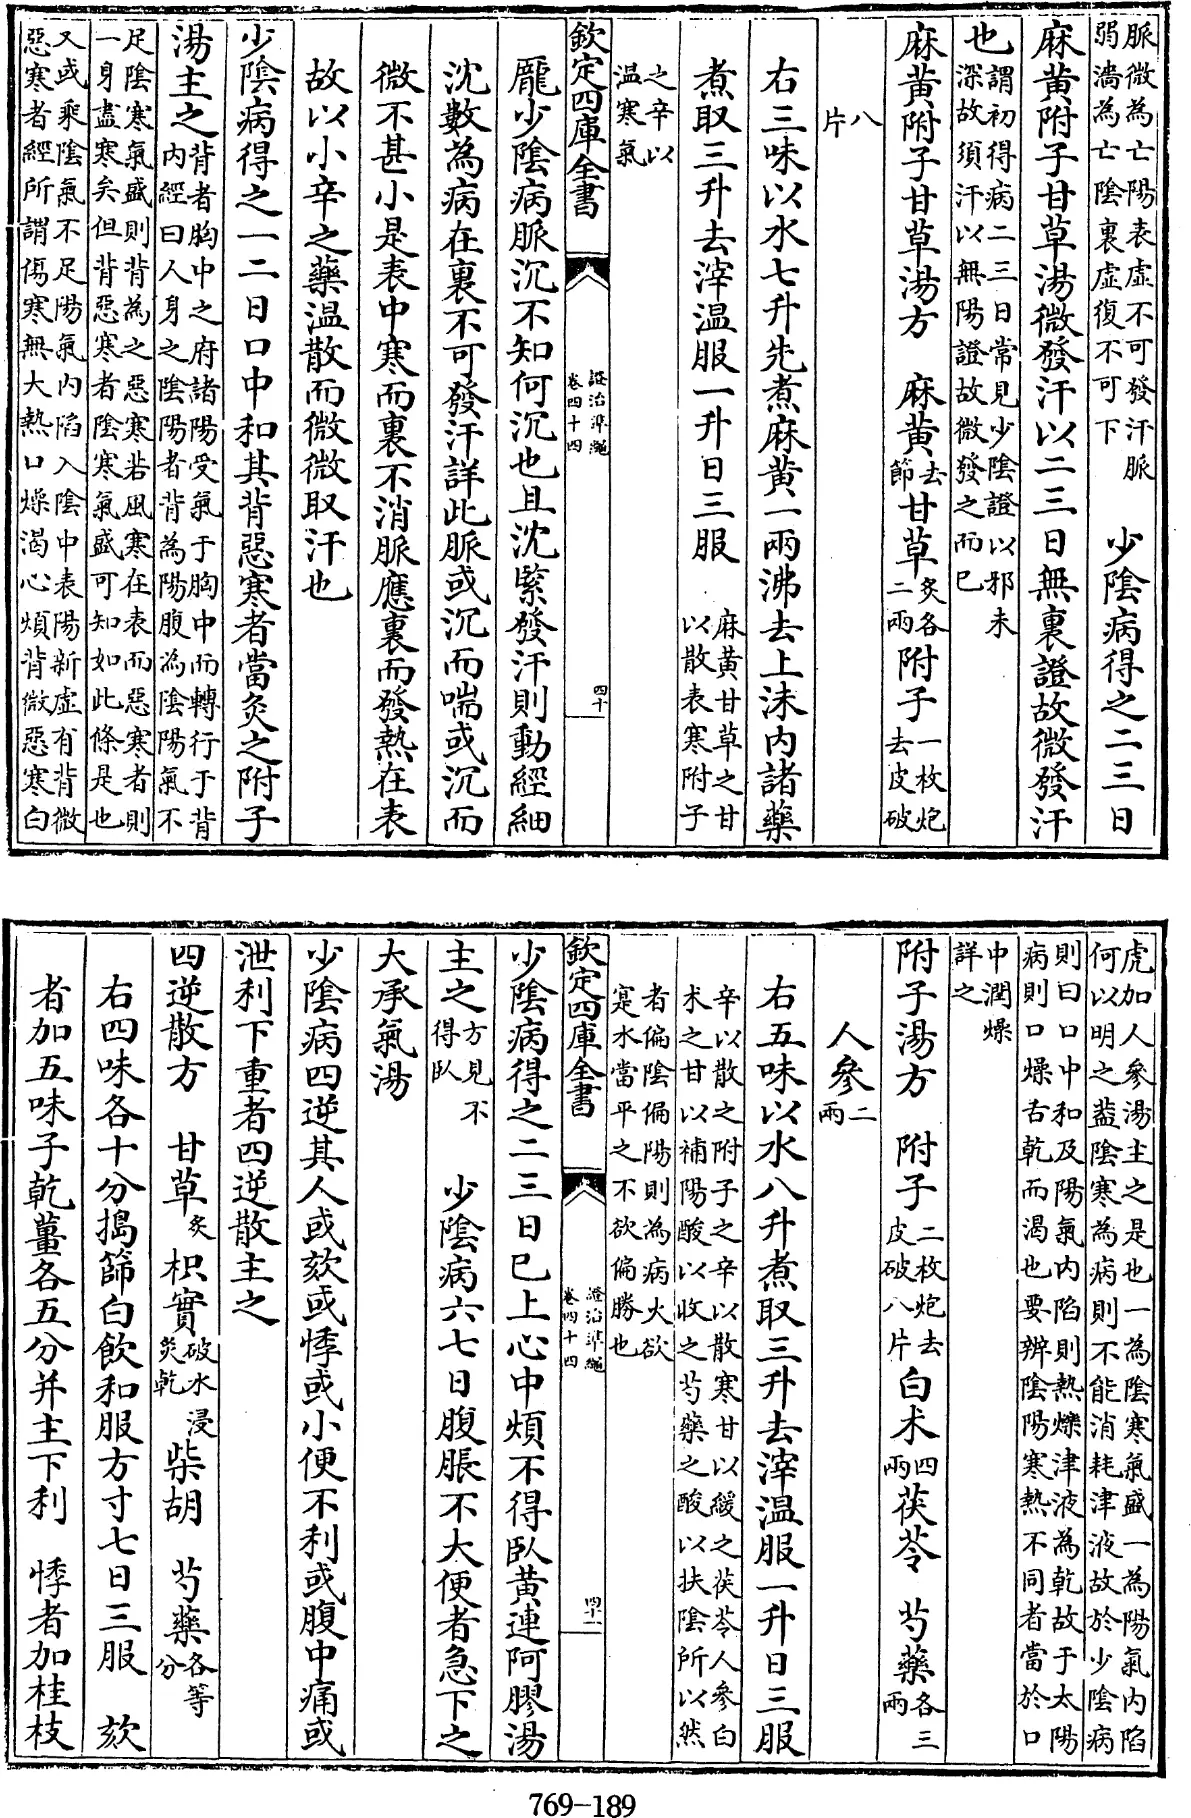 脈微為亡陽表虛不可發汗脈
弱濇為亡陰裏虛復不可下　少陰病得之二三日
麻黃附子甘草湯微發汗以二三日無裏證故微發汗
也謂初得病二三日常見少陰證以邪未
深故須汗以無陽證故微發之而已
麻黃附子甘草湯方　麻黃去節甘草炙各二兩附子一枚炮去皮破
八片
右三味以水七升先煮麻黃一兩沸去上沫內諸藥
煮取三升去滓温服一升日三服　麻黃甘草之甘
以散表寒附子
之辛以
温寒氣
欽定四庫全書
證治準繩
卷四十四
四十
龎少陰病脈沉不知何沉也且沈緊發汗則動經細
沈數為病在裏不可發汗詳此脈或沉而喘或沉而
微不甚小是表中寒而裏不消脈應裏而發熱在表
故以小辛之藥温散而微微取汗也
少陰病得之一二日口中和其背惡寒者當灸之附子
湯主之背者胸中之府諸陽受氣于胸中而轉行于背
內經曰人身之陰陽者背為陽腹為陰陽氣不
足陰寒氣盛則背為之惡寒若風寒在表而惡寒者則
一身盡寒矣但背惡寒者陰寒氣盛可知如此條是也
又或乘陰氣不足陽氣內陷入陰中表陽新虛有背微
惡寒者經所謂傷寒無大熱口燥渴心煩背微惡寒白
虎加人參湯主之是也一為陰寒氣盛一為陽氣內陷
何以明之葢陰寒為病則不能消耗津液故於少陰病
則曰口中和及陽氣內陷則熱爍津液為乾故于太陽
病則口燥舌乾而渴也要辨陰陽寒熱不同者當於口
中潤燥
詳之
附子湯方　附子二枚炮去皮破八片白朮四兩茯苓　芍藥各三兩
人參二兩
右五味以水八升煮取三升去滓温服一升日三服
辛以散之附子之辛以散寒甘以緩之茯苓人參白
朮之甘以補陽酸以收之芍藥之酸以扶陰所以然
者偏陰偏陽則為病火欲
寔水當平之不欲偏勝也
欽定四庫全書
證治準繩
卷四十四
四十一
少陰病得之二三日已上心中煩不得臥黃連阿膠湯
主之方見不得臥　少陰病六七日腹脹不大便者急下之
大承氣湯
少陰病四逆其人或欬或悸或小便不利或腹中痛或
泄利下重者四逆散主之
四逆散方　甘草炙枳實破水浸炙乾柴胡　芍藥各等分
右四味各十分搗篩白飲和服方寸七日三服　欬
者加五味子乾薑各五分并主下利　悸者加桂枝
769-189